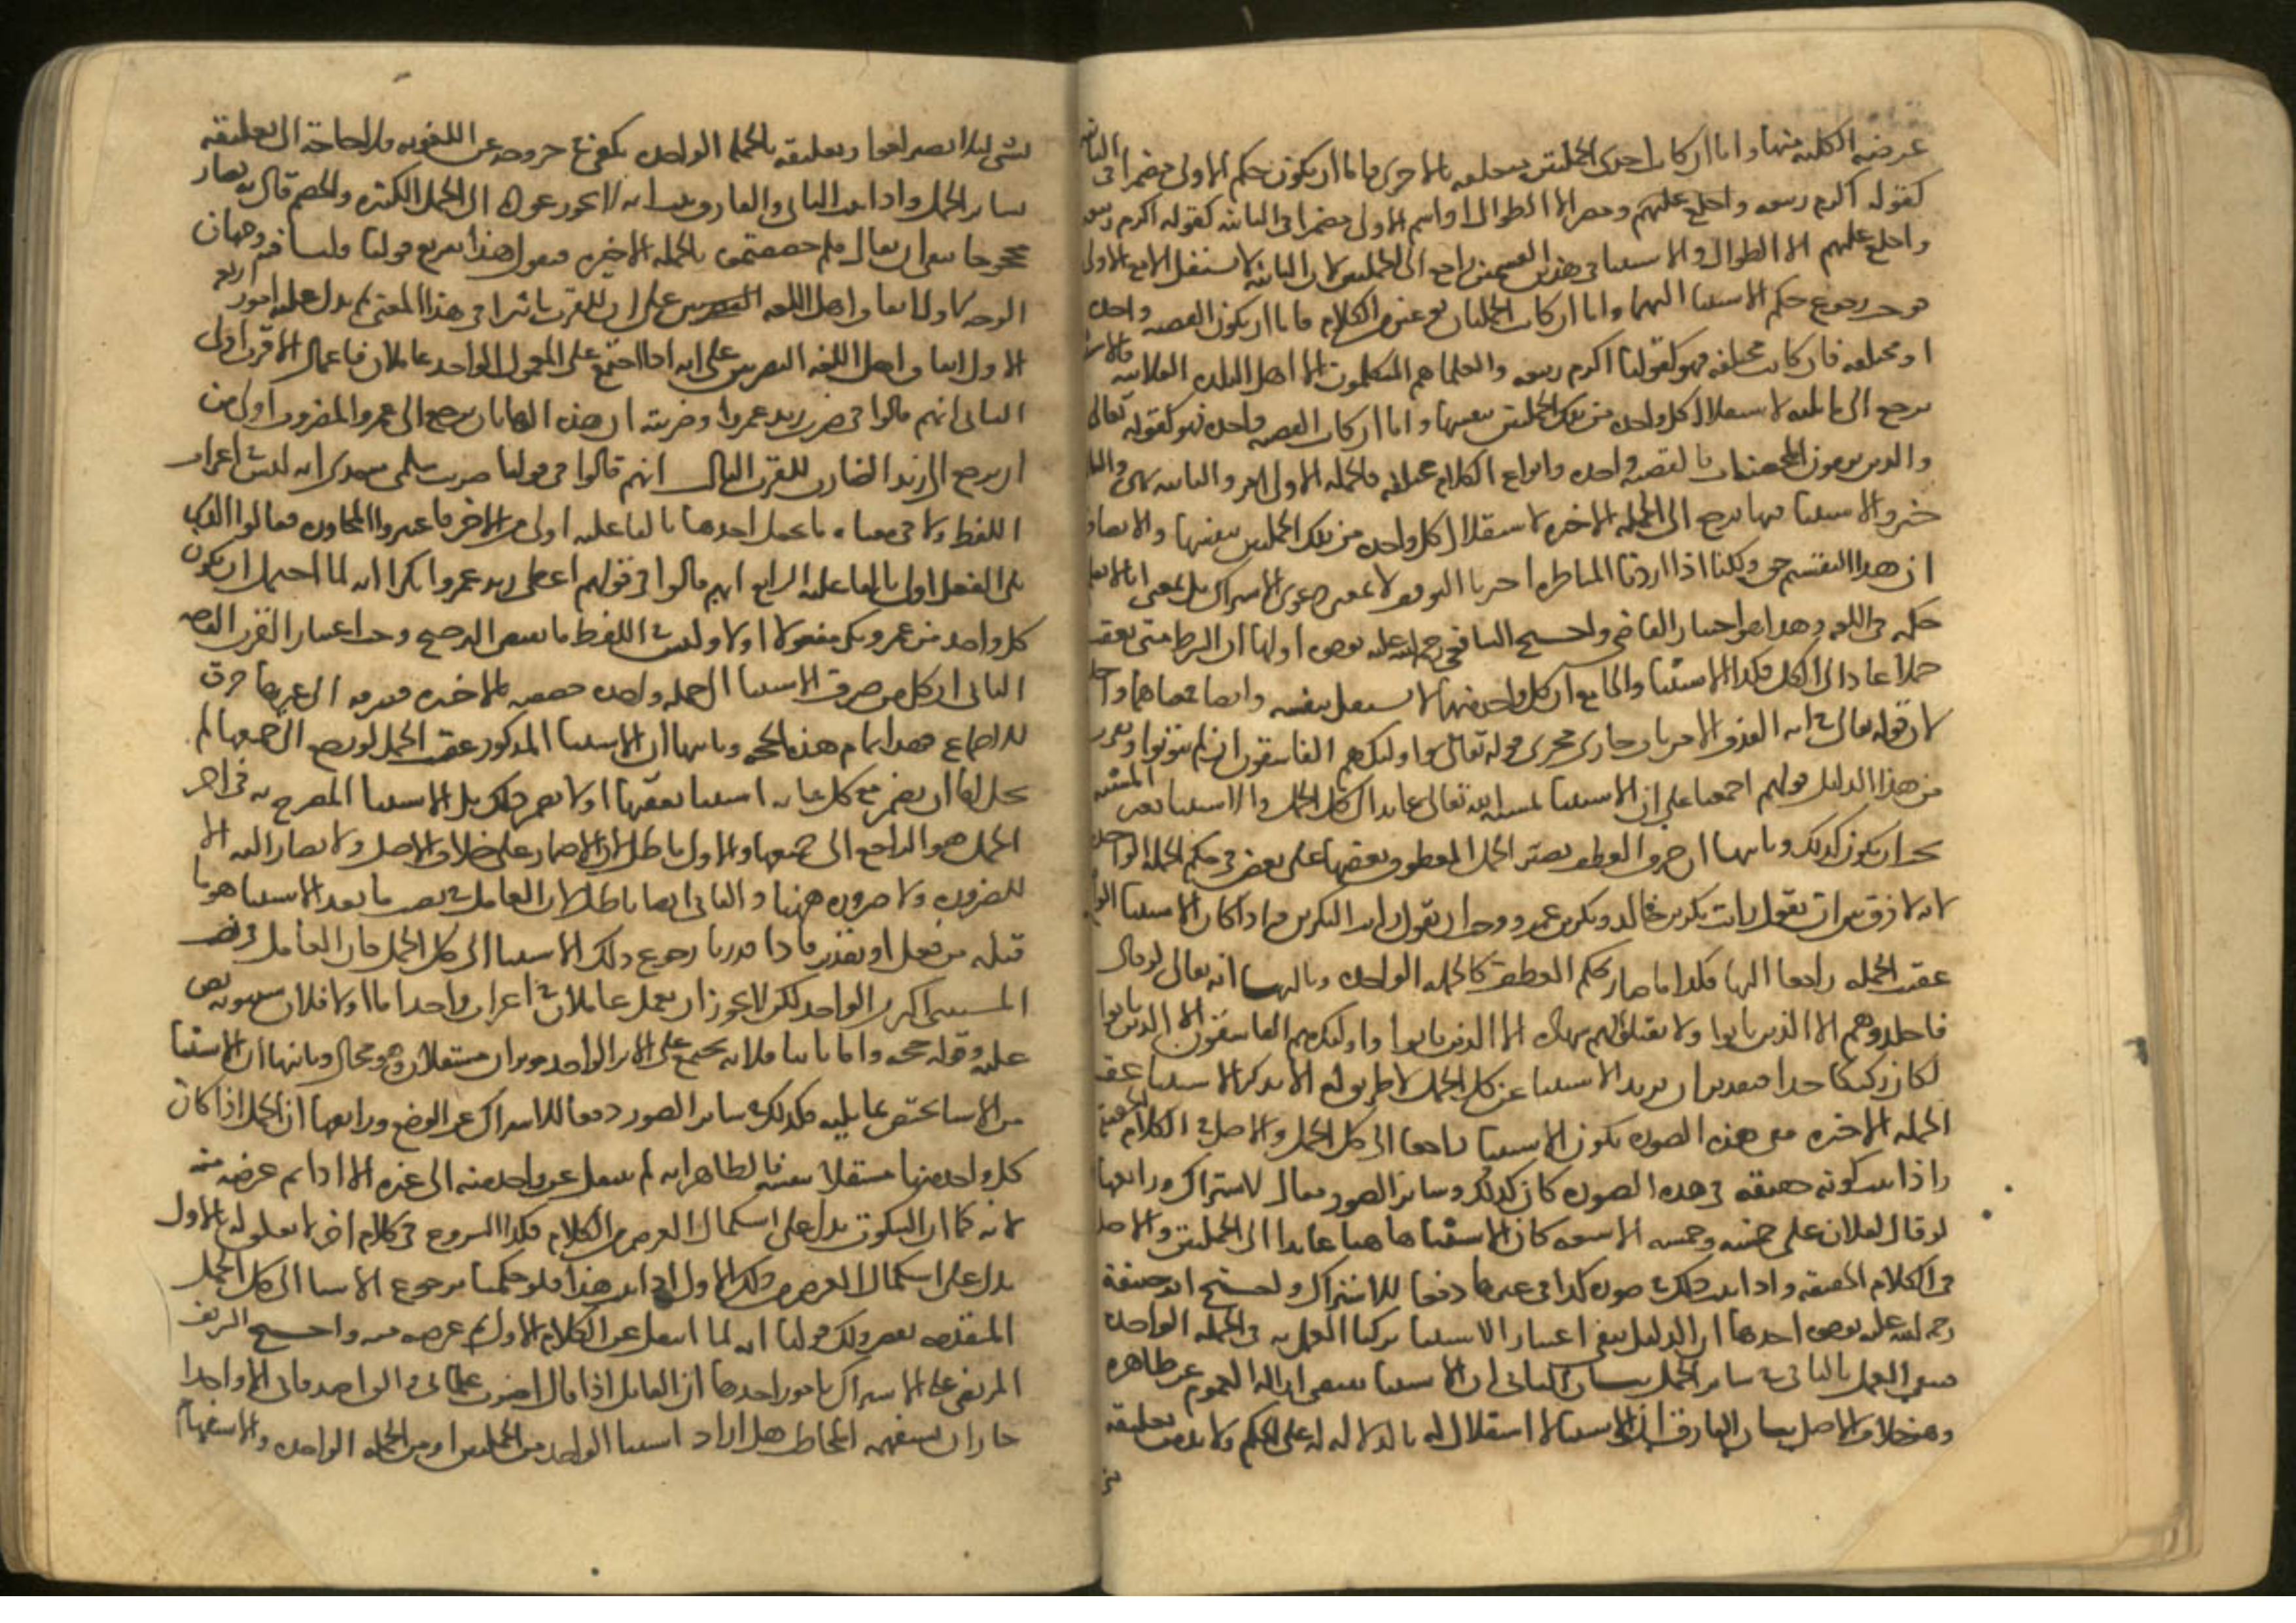 عرضه الكلية منها واما ان كانت احدى الجملتين متعلقه بالاخرى فاما ان يكون حكم الاولى مضمرا في الثانيه
كقوله اكرم ربيعه واخلع عليهم ومضر الا الطوال او اسم الاولى مضمرا في الثانيه كقوله اكرم ربيعه
واخلع عليهم الا الطوال والاستثنا في هذين القسمين راجع الى الجملتين لان الثانيه لا تستقل الا مع الاولى
فوجب رجوع حكم الاستثنا اليهما واما ان كانت الجملتان نوعين من الكلام فاما ان يكون القصه واحده
او مختلفه فان كانت مختلفه فهو كقولنا اكرم ربيعه والعلما هم المتكلمون الا اهل البلده الفلانيه فالاستثنا
يرجع الى ما يليه لاستقلال كل واحده من تلك الجملتين بنفسها واما ان كانت القصه واحده فهو كقوله تعالى
والذين يرمون المحصنات فالقصه واحده وانواع الكلام مختلفه فالجمله الاولى امر والثانيه نهي والثالثه
خبر والاستثنا فيها يرجع الى الجمله الاخيره لاستقلال كل واحده من تلك الجملتين بنفسها والانصاف
ان هذا التقسيم حق ولكنا اذا اردنا المناظره اخترنا التوقف لا بمعنى دعوى الاشتراك بل بمعنى انا لا نعلم
حكمه في اللغه وهذا هو اختيار القاضي واحتج الشافعي رحمه الله عليه بوجوه اولها ان الشرط متى تعقب
جملا عاد الى الكل فكذا الاستثنا والجامع ان كل واحد منهما لا يستقل بنفسه وايضا فمعناهما واحد
لان قوله تعالى في ايه القذف الا من تاب جار مجرى قوله تعالى واوليك هم الفاسقون ان لم يتوبوا ويقرب
من هذا الدليل قولهم اجمعنا على ان الاستثنا بمشيه الله تعالى عايد الى كل الجمل والاستثنا بغير المشيه
يجب ان يكون كذلك وثانيها ان حرف العطف يصير الجمل المعطوف بعضها على بعض في حكم الجمله الواحده
لانه لا فرق بين ان تقول رايت بكر بن خالد وبكر بن عمرو وبين ان تقول رايت البكرين واذا كان الاستثنا الواقع
عقب الجمله راجعا اليها فكذا ما صار بحكم العطف كالجمله الواحده وثالثها انه تعالى لو قال
فاجلدوهم الا الذين تابوا ولا تقبلوا لهم شهاده الا الذين تابوا واوليك هم الفاسقون الا الذين تابوا
لكان ركيكا جدا فبتقدير ان يريد الاستثنا عن كل الجمل لا طريق له الا بذكر الاستثنا عقب
الجمله الاخيره ففي هذه الصوره يكون الاستثنا راجعا الى كل الجمل والاصل في الكلام الحقيقه
واذا ثبت كونه حقيقه في هذه الصوره كان كذلك في ساير الصور دفعا للاشتراك ورابعها
لو قال لفلان على خمسه وخمسه الا سبعه كان الاستثنا هاهنا عايدا الى الجملتين والاصل
في الكلام الحقيقه واذا ثبت ذلك في صوره فكذا في غيرها دفعا للاشتراك واحتج ابو حنيفة
رحمه الله عليه بوجوه احدها ان الدليل ينفي اعتبار الاستثنا تركنا العمل به في الجمله الواحده
فيبقى العمل بالباقي في ساير الجمل بيان النافي ان الاستثنا يقتضي ازاله العموم عن ظاهره
وهو خلاف الاصل بيان الفارق ان الاستثنا لا استقلال له بالدلاله على الحكم ولا بد من تعليقه
بشي ليلا يصير لغوا وتعليقه بالجمله الواحده يكفي في خروجه عن اللغويه فلا حاجة الى تعليقه
بساير الجمل واذا ثبت النافي والفارق ثبت انه لا يجوز عوده الى الجمل الكثيره والخصم قال به فصار
محجوجا بقي ان يقال فلم خصصتموه بالجمله الاخيره فنقول هذا تفريع قولنا ولنا فيه وجهان
الوجه الاول اتفاق اهل اللغه البصريين على ان للقرب تاثيرا في هذا المعنى ثم يدل عليه امور اربع
الاول اتفاق اهل اللغه البصريين على انه اذا اجتمع على المعمول الواحد عاملان فاعمال الاقرب اولى
الثاني انهم قالوا في ضرب زيد عمروا وضربته ان هذه الها بان يرجع الى عمرو المضروب اولى من
ان يرجع الى زيد الضارب للقرب الثالث انهم قالوا في قولنا ضربت سلمى سعدى انه ليس في اعراب
اللفظ ولا في معناه ما يجعل احدهما بالفاعليه اولى من الاخر فاعتبروا المجاوره فقالوا الذي
يلى الفعل اولى بالفاعليه الرابع انهم قالوا في قولهم اعطى زيد عمروا بكرا انه لما احتمل ان يكون
كل واحد من عمرو وبكر مفعولا اولا وليس في اللفظ ما يقتضي الترجيح وجب اعتبار القرب القصه
الثاني ان كل من صرف الاستثنا الى جمله واحده خصصه بالاخيره فصرفه الى غيرها خرق
للاجماع فهذا تمام هذه الحجه وثانيها ان الاستثنا المذكور عقب الجمل لو رجع الى جميعها لم
يخل اما ان يضمر مع كل جمله استثنا يعقبها او لا يضمر ذلك بل الاستثنا المصرح به في اخر
الجمل هو الراجع الى جميعها والاول باطل لان الاضمار على خلاف الاصل ولا يصار اليه الا
للضروره ولا ضروره ههنا والثاني ايضا باطل لان العامل في نصب ما بعد الاستثنا هو ما
قبله من فعل او تقدير فاذا قدرنا رجوع ذلك الاستثنا الى كل الجمل فان العامل في نصب
المستثنى اكثر من الواحد لكن لا يجوز ان يعمل عاملان في اعراب واحد اما اولا فلان سيبويه نص
عليه وقوله حجه واما ثانيا فلانه يجتمع على الاثر الواحد موثران مستقلان وهو محال وثالثها ان الاستثنا
من الاستثنا يختص بما يليه فكذلك في ساير الصور دفعا للاشتراك عن الوضع ورابعها ان الجمل اذا كان
كل واحده منها مستقلا بنفسه فالظاهر انه لم ينتقل عن واحده منه الى غيره الا اذا تم عرضه منه
لانه كما ان السكوت يدل على استكمال الغرض من الكلام فكذا الشروع في كلام اخر لا تعلق له بالاول
يدل على استكمال الغرض من ذلك الاول اذا ثبت هذا فلو حكمنا برجوع الاستثنا الى كل الجمل
المتقدمه نقض ذلك قولنا انه لما انتقل عن الكلام الاول تم غرضه منه واحتج الشريف
المرتضى على الاشتراك بامور احدها ان القايل اذا قال اضرب غلماني والق اصدقائي الا واحدا
جاز ان يستفهم المخاطب هل اراد استثنا الواحد من الجملتين او من الجمله الواحده والاستفهام